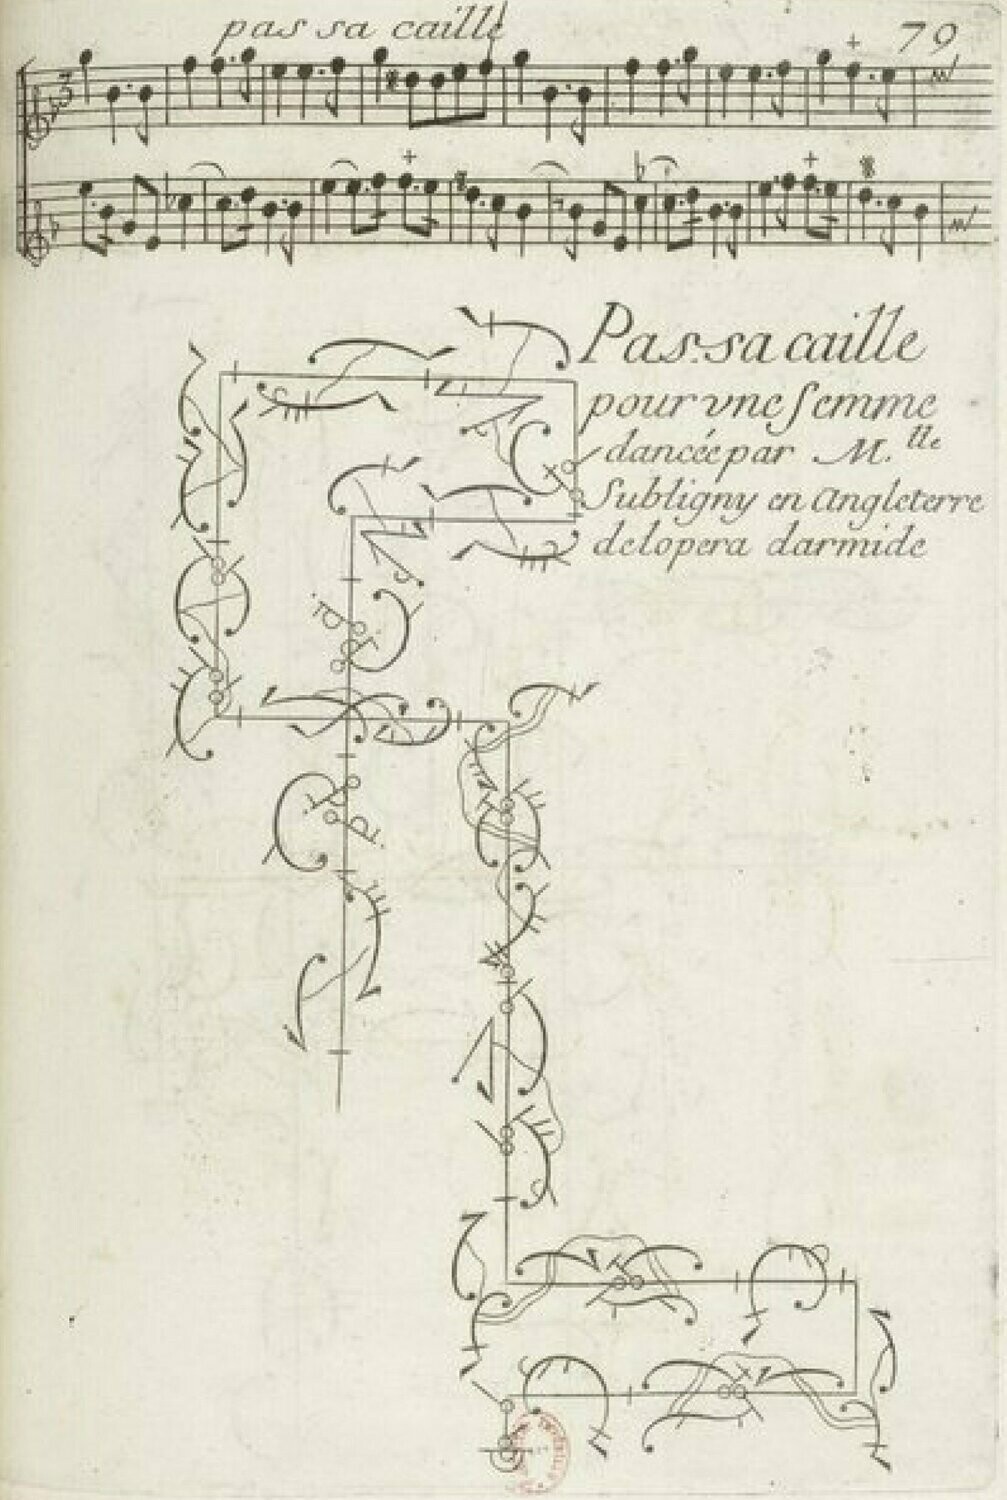 pas sa caille 79
3
Pas-sa caille
pour vne femme
dancée par M.lle
Subligny en Angleterre
de lopera darmide